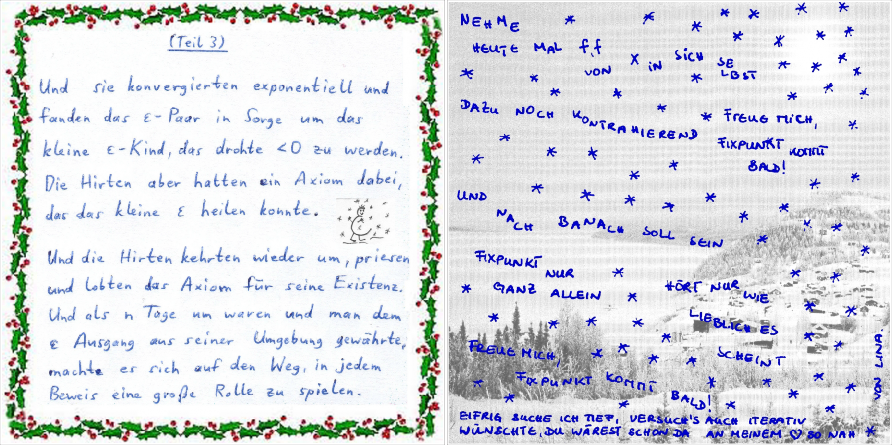 (Teil 3)
Und sie konvergierten exponentiell und
fanden das ε-Paar in Sorge um das
kleine ε-Kind, das drohte <0 zu werden.
Die Hirten aber hatten ein Axiom dabei,
das das kleine ε heilen konnte.
Und die Hirten kehrten wieder um, priesen
und lobten das Axiom für seine Existenz.
Und als n Tage um waren und man dem
ε Ausgang aus seiner Umgebung gewährte,
machte es sich auf den Weg, in jedem
Beweis eine große Rolle zu spielen.
NEHME
HEUTE MAL f,f
VON X IN SICH SELBST
DAZU NOCH KONTRAHIEREND
FREUE MICH,
FIXPUNKT KOMMT
BALD!
UND
NACH BANACH SOLL SEIN
FIXPUNKT
NUR
GANZ ALLEIN
HÖRT NUR WIE
LIEBLICH ES
SCHEINT
FREUE MICH,
FIXPUNKT KOMMT
BALD!
EIFRIG SUCHE ICH TIEF, VERSUCH'S AUCH ITERATIV
WÜNSCHTE, DU WÄREST SCHON DA AN MEINEM ♡ SO NAH
VON LINA.